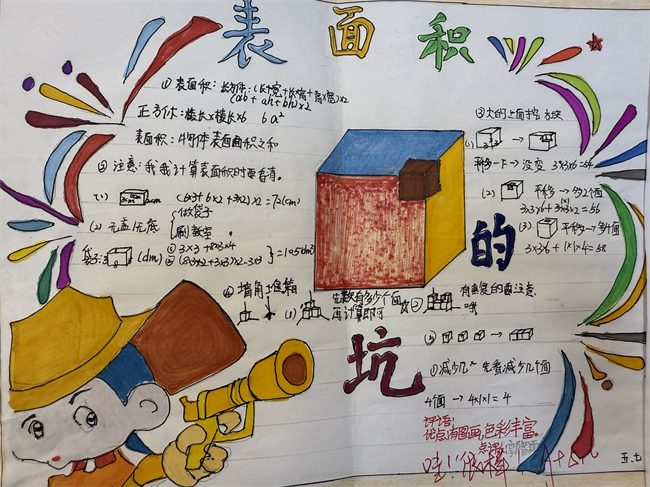 表面积
的
坑
① 表面积：长方体：(长×宽+长×高+高×宽)×2
(ab + ah + bh)×2
正方体：棱长×棱长×6 6a²
表面积：物体表面面积之和
② 注意：我 计算表面积时要看有。
(1) (6×3+6×2+3×2)×2=72(cm)
(2) 无盖/无底
刷教室。
(dm)
① 3×3+8×3×4
② (8×3×2+3×3)×2-3×3
=105
④ 墙角堆箱
(1) 先数有多少个面
再计算即可
(2) 有重复的要注意
③ 大的上面挖
(1)
平移→没变 3×3×6=54
(2) 平移→多2个面
3×3×6+ ×2=56
(3) 平移→多4个面
3×3×6+1×1×4=58
⑤
①减少几 先看减少几个面
4个面 → 4×1×1=4
评语：
优点：有图画，色彩丰富。
哇!!很棒
五.七